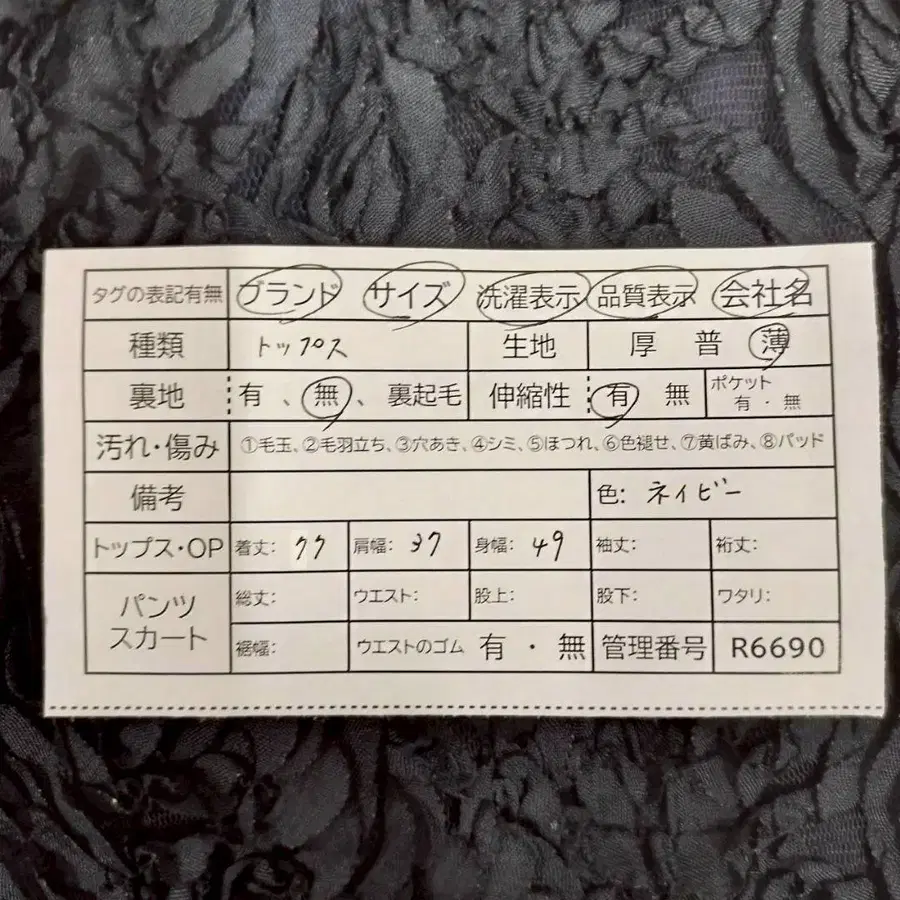 タグの表記有無 ブランド サイズ 洗濯表示 品質表示 会社名
種類 トップス 生地 厚 普 薄
裏地 有 、 無 、 裏起毛 伸縮性 有 無 ポケット 有 ・ 無
汚れ・傷み ①毛玉、②毛羽立ち、③穴あき、④シミ、⑤ほつれ、⑥色褪せ、⑦黄ばみ、⑧パッド
備考 色: ネイビー
トップス・OP 着丈: 77 肩幅: 37 身幅: 49 袖丈: 裄丈:
パンツ スカート 総丈: ウエスト: 股上: 股下: ワタリ:
裾幅: ウエストのゴム 有 ・ 無 管理番号 R6690